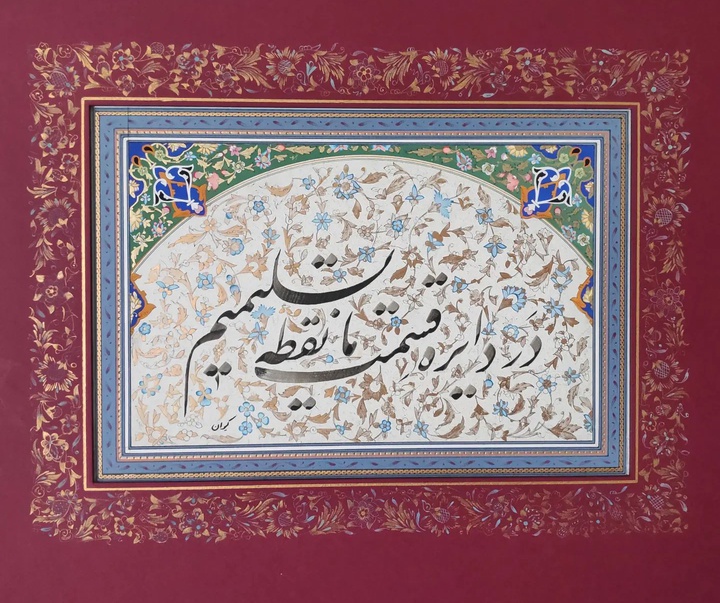 در دایره قسمت ما نقطه تسلیمیم